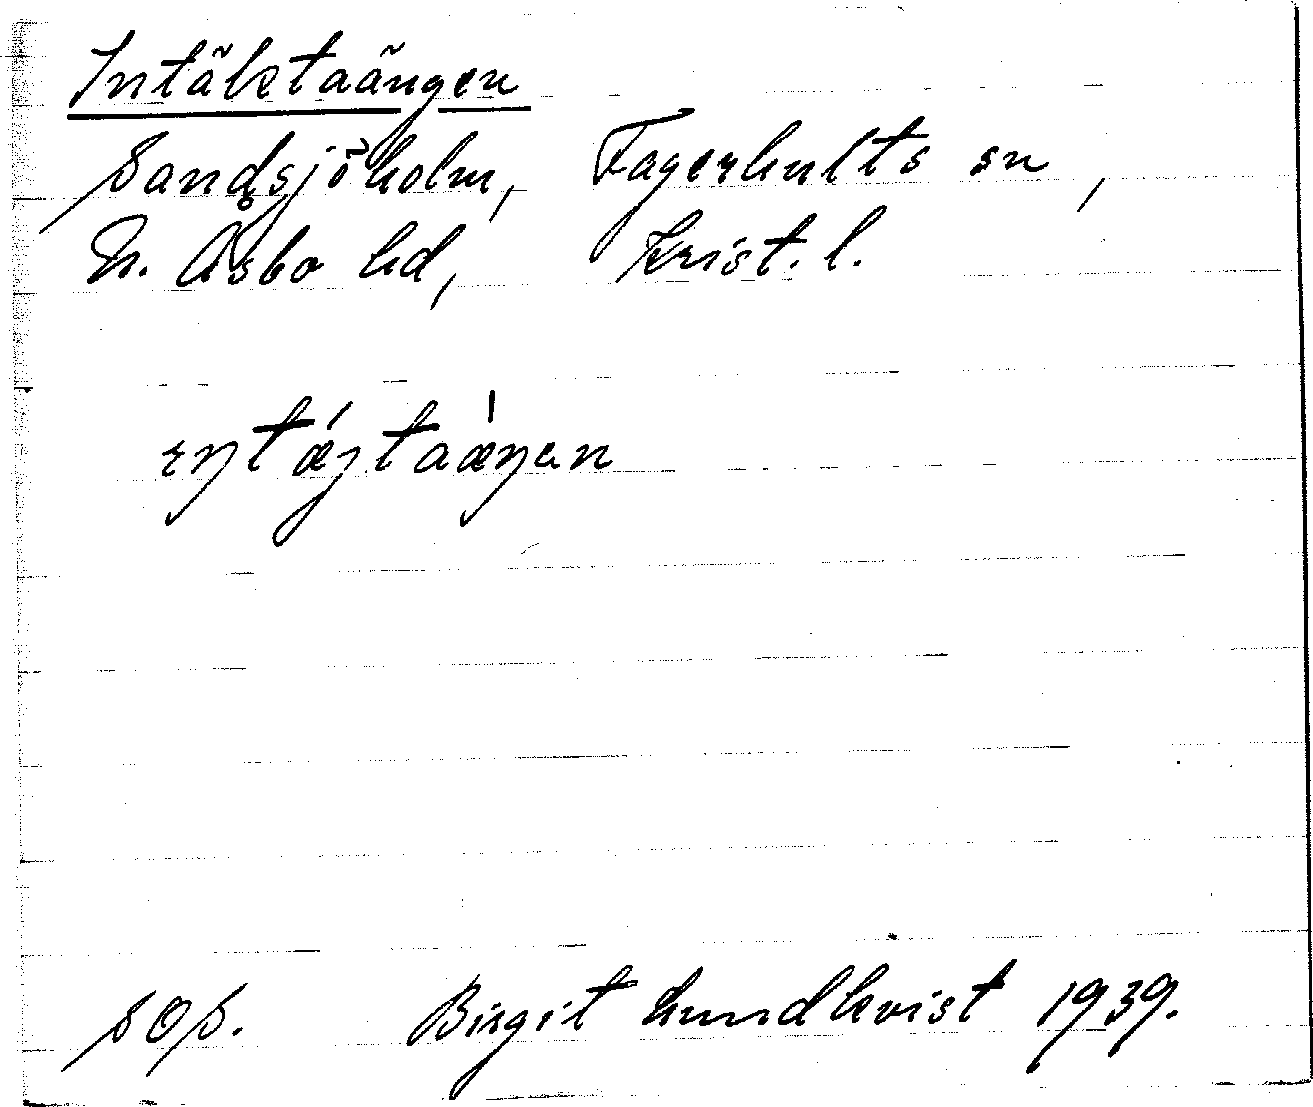 Intäktaängen
Sandsjöholm, Fagerhults sn,
N. Åsbo hd, Krist. l.
SOP. Birgit Lundkvist 1939.